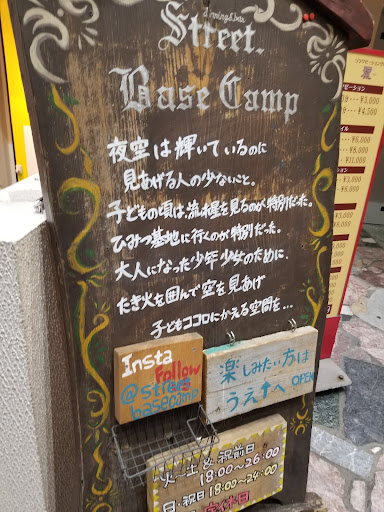 dining&bar
Street.
Base Camp
夜空は輝いているのに
見あげる人の少ないこと。
子どもの頃は、流れ星を見るのが特別だった。
ひみつ基地に行くのが特別だった。
大人になった少年少女のために、
たき火を囲んで空を見あげ
子どもココロにかえる空間を...
Insta
Follow
@street
basecamp
楽しみたい方は
うえナへ OPEN
火〜土&祝前日
18:00〜26:00
日・祝日 18:00〜24:00
定休日
¥3,000
¥4,500
¥6,000
¥8,000
¥11,000
¥3,000
¥6,000